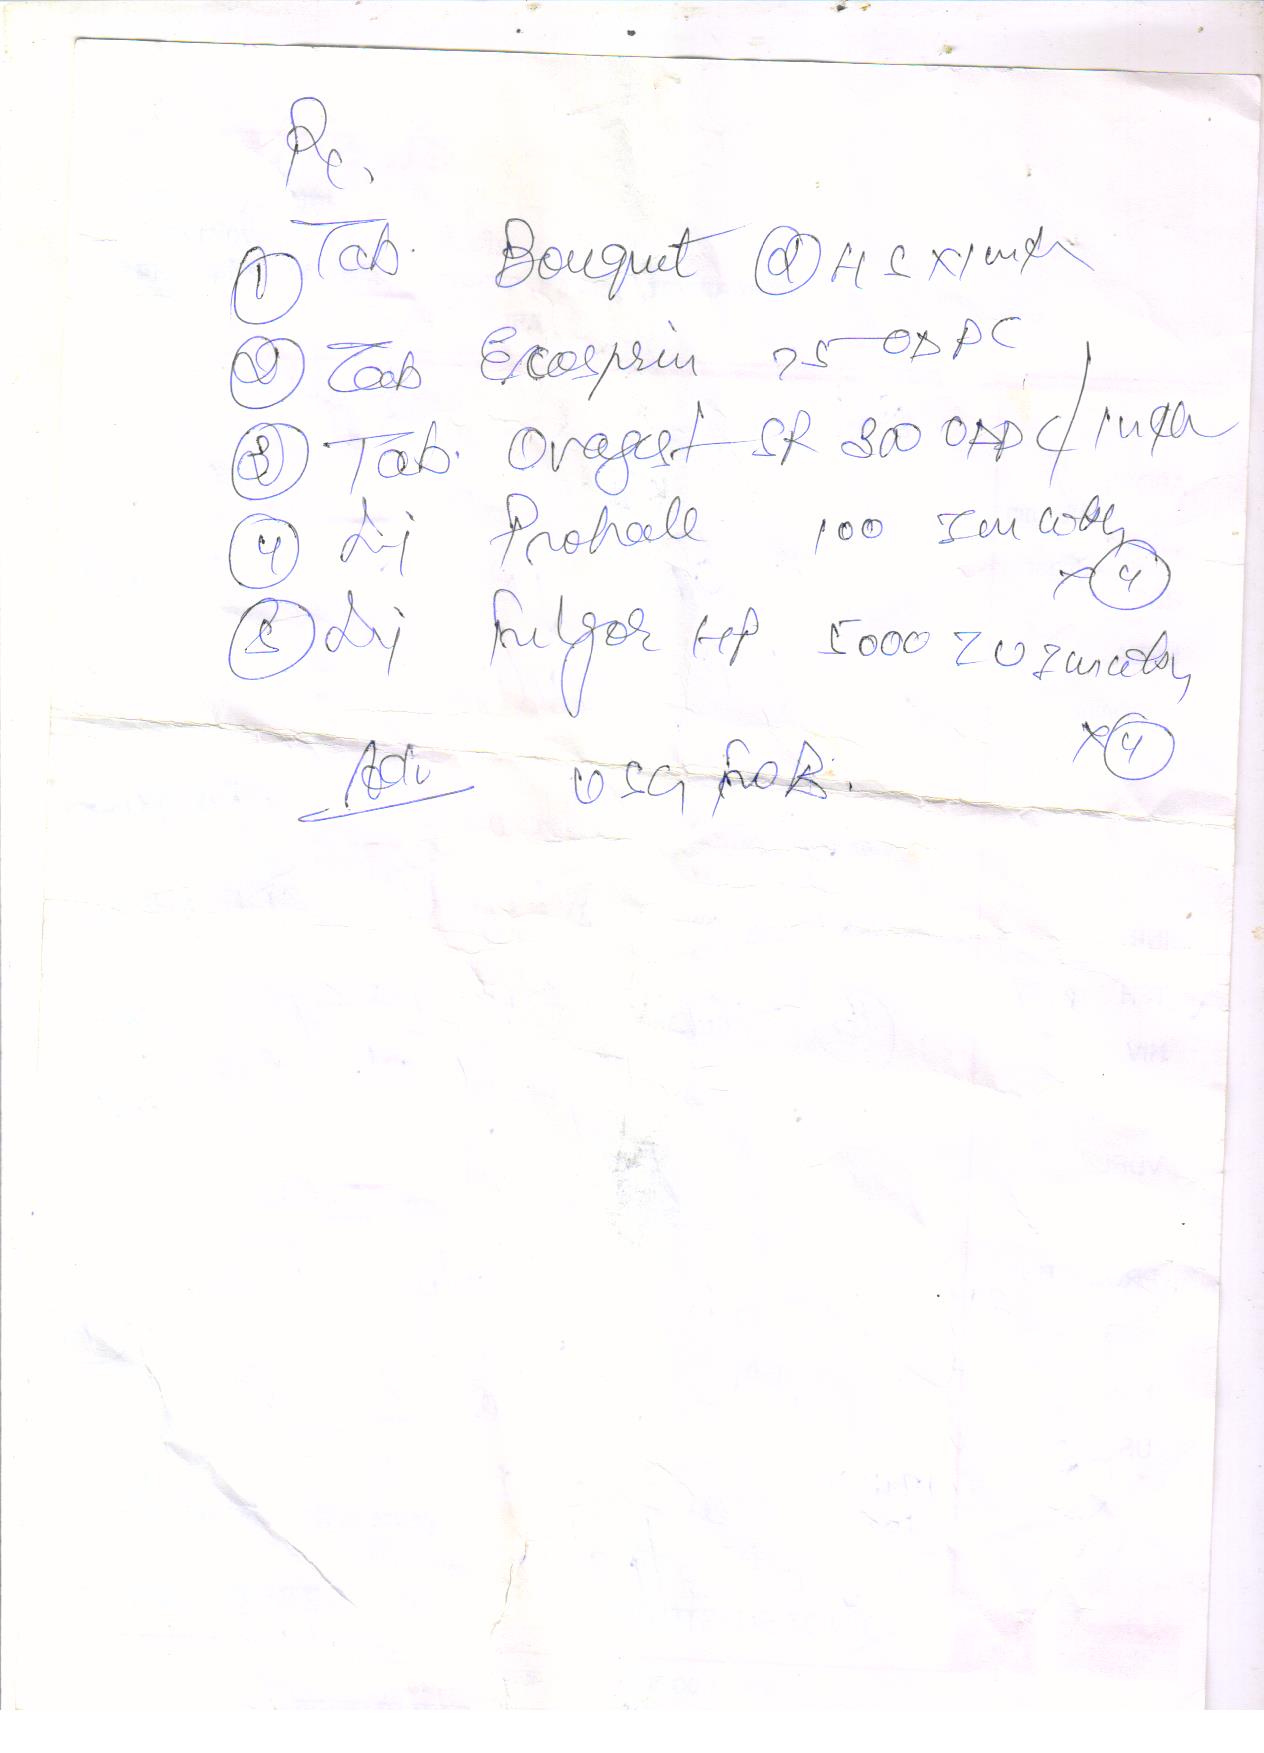 Rx,
① Tab. Bouquet ① HS x 1 mth
② Tab Ecosprin 75 OD PC
③ Tab. Oragest SR 300 OD PC / 1 mth
④ Inj 100 IM
x ④
⑤ Inj HP 5000 IU
x ④
Adv USG